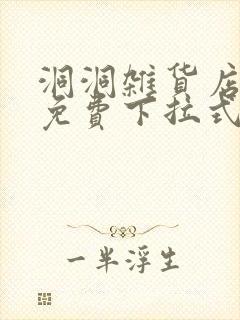 洞洞雜貨店
免費下拉式
一半浮生